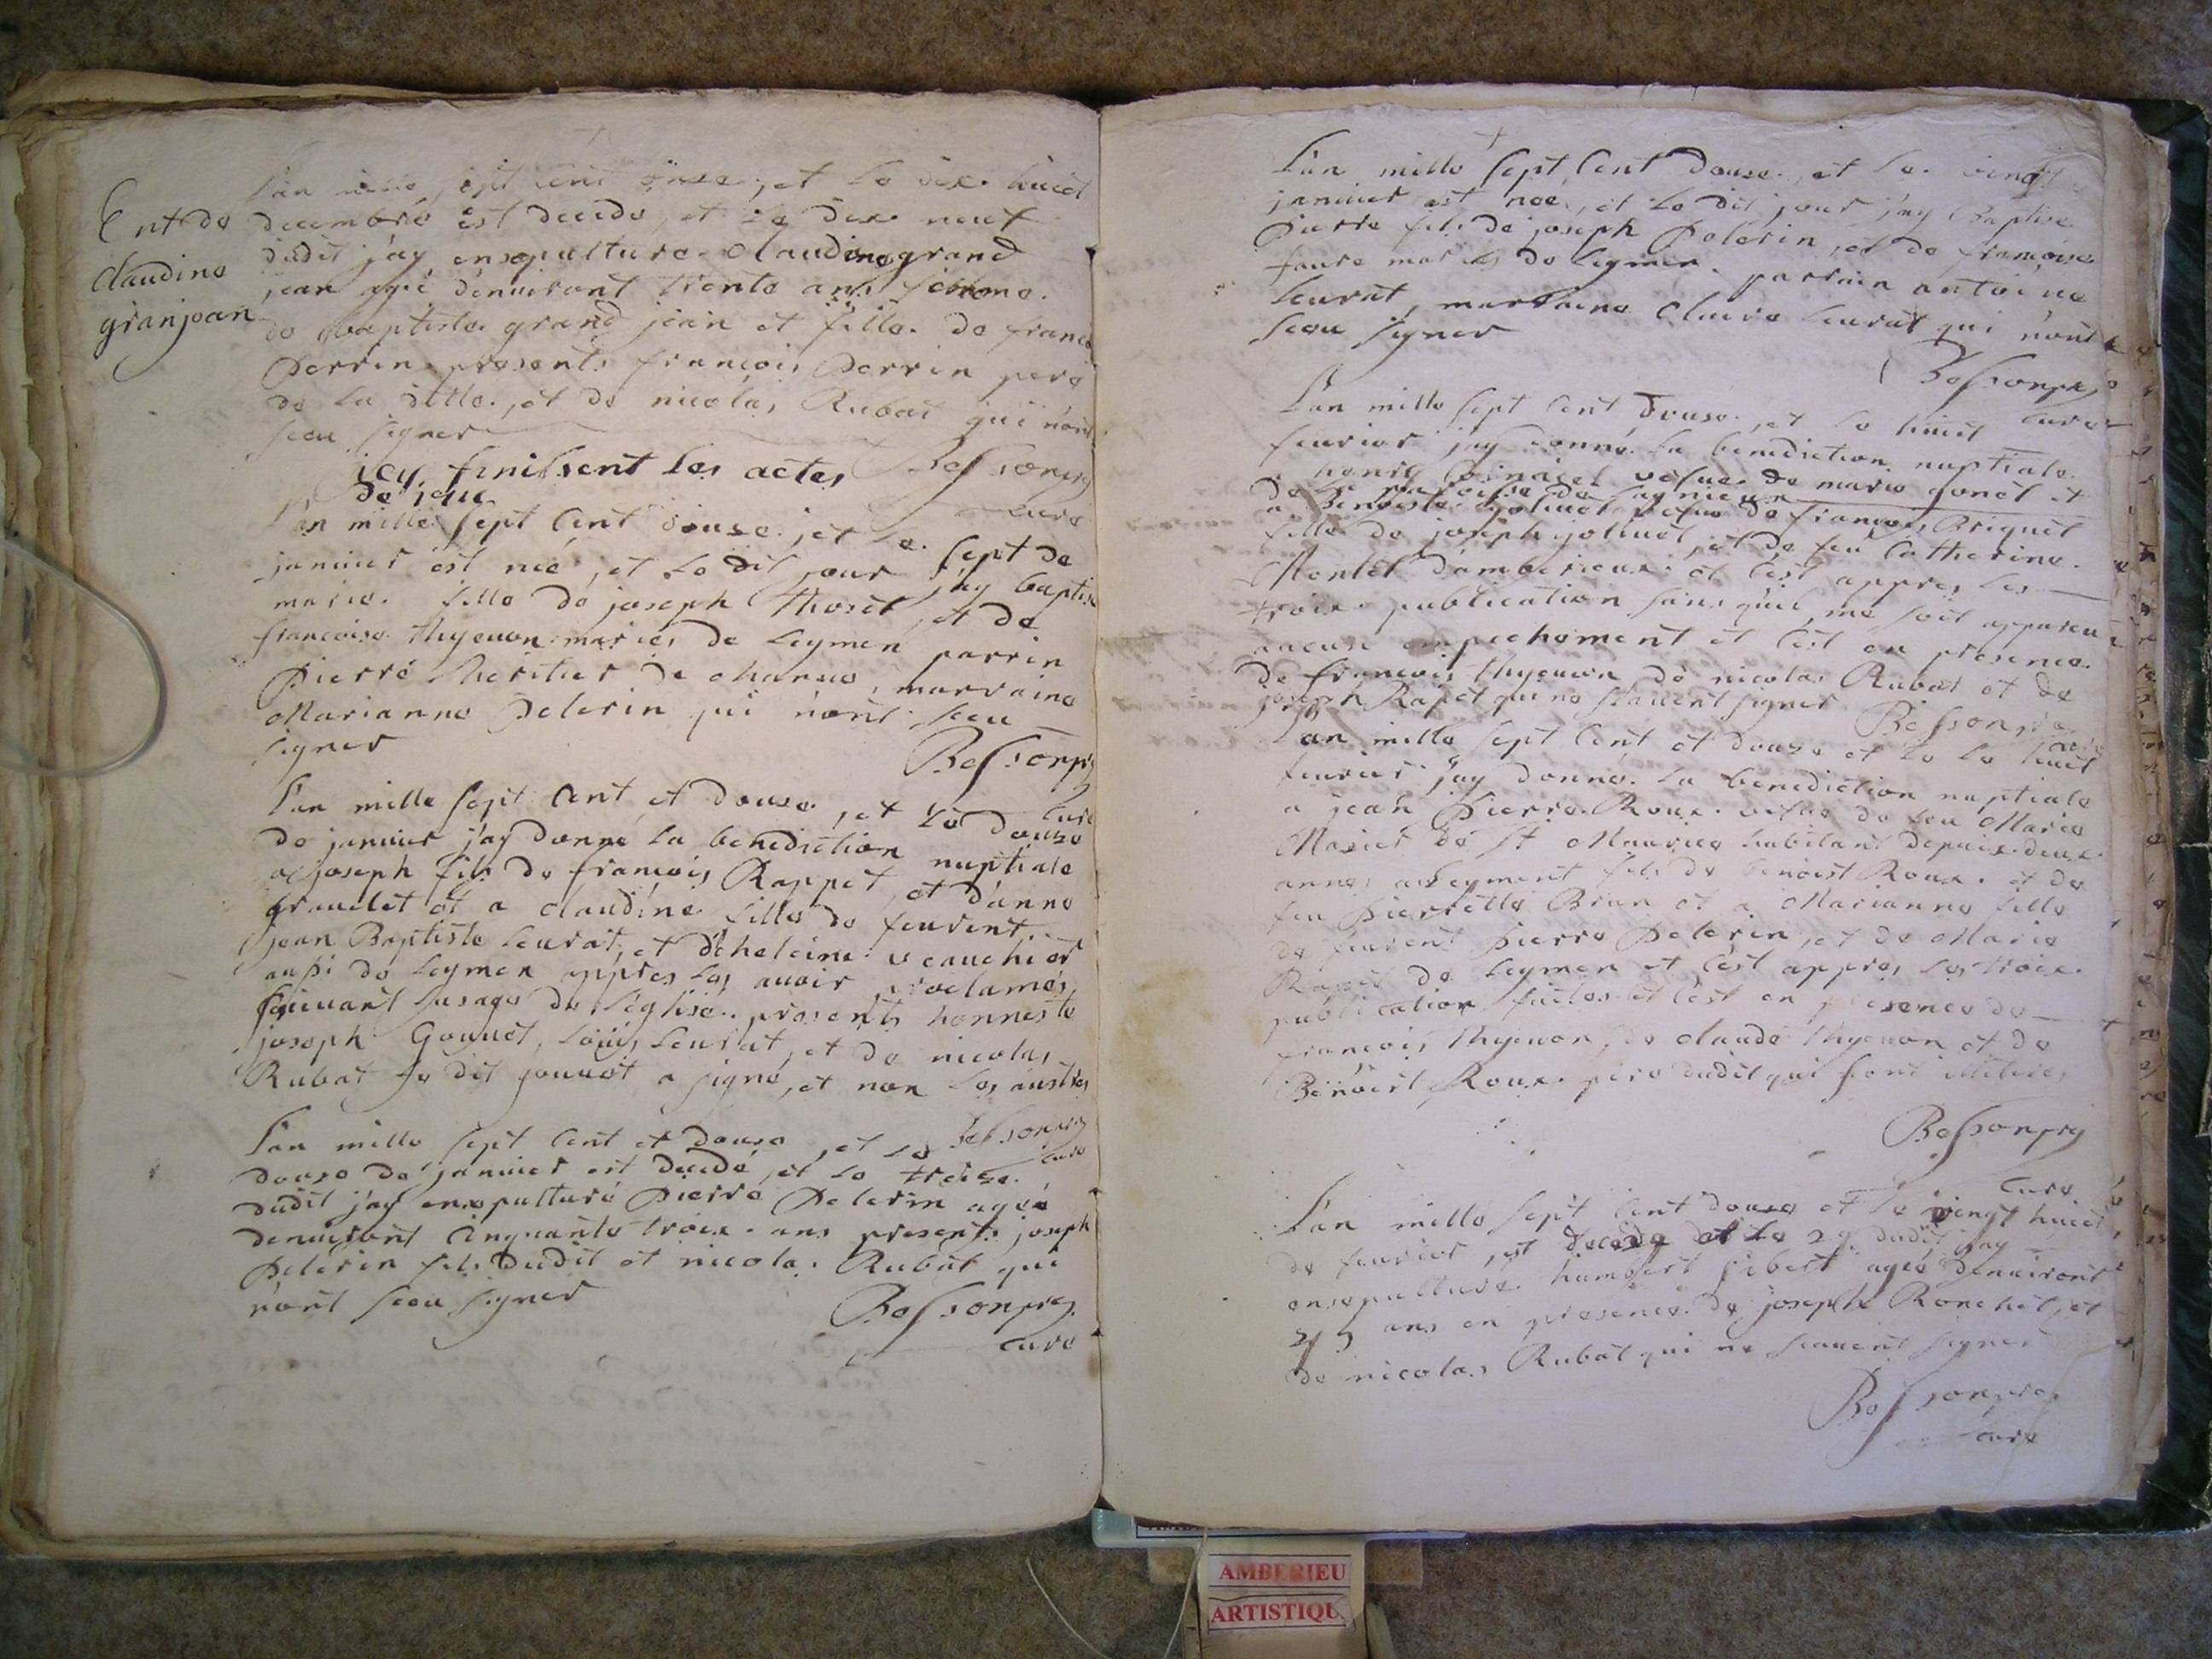 L'an mille sept cent onze, et le dix huict
Ent de decembre est decede, et le dix neuf
Claudine dudit j'ay ensepulture Claudine grand
granjean jean agé denuiront trente ans femme
de Baptiste grand jean et fille de
Perrin presents françois Perrin pere
de la ditte, et de nicolas Rubat qui n'ont
sceu signer
Bessonpre
curé
icy finissent les actes
de
L'an mille sept cent douse, et le sept de
januier est neé, et le dit jour j'ay baptisé
marie fille de joseph Thoset et de
francoise thyeuon mariés de leymen parrin
Pierre heritier de, marraine
Marianne Pelerin qui n'ont sceu
signer
Bessonpre
curé
L'an mille sept cent et douse, et le douse
de januier j'ay donné la benediction nuptiale
a joseph fils de françois Rappet, et d'anne
grauelet et a claudine fille de feurent
jean Baptiste leurat, et d'heleine veauchier
aussi de leymen appres les auoir proclamés
suiuant l'usage de l'église presents honneste
joseph Gouuet, Loüis leurat, et de nicolas
Rubat le dit gouuet a signé, et non les austres
Bessonpre
curé
L'an mille sept cent et douse, et le
douse de januier est decedé, et le treize
dudit j'ay ensepulturé Pierre Pelerin ageé
denuiront cinquante troix ans presents joseph
Pelerin fils dudit et nicolas Rubat qui
n'ont sceu signer
Bessonpre
curé
L'an mille sept cent douse, et le vingt
januier est neé, et le dit jour j'ay Baptisé
Pierre fils de joseph Pelerin, et de françoise
faure mariés de leymen parrain antoine
leurat, marraine Claire leurat qui n'ont
sceu signer
Bessonpre
curé
L'an mille sept cent douse, et le huict
feurier j'ay donné la benediction nuptiale
a henry vefue de marie gonet et
de la paroisse de
a Benoiste joliuet vefue de françois Briquet
fille de joseph joliuet, et de feu Catherine
Montet d'amberieux et c'est appres les
troix publication sans qu'il me soit appareu
aucuse empechement et c'est en presence
de françois thyeuon de nicolas Rubat et de
joseph Rapet qui ne scauent signer
Bessonpre
curé
L'an mille sept cent et douse et le le huict
feurier j'ay donné la benediction nuptiale
a jean Pierre Roux vefue de feu Marie
de St Maurice habitant depuix deux
annes a leyment fils de benoist Roux et de
feu Pierrette Brun et a Marianne fille
de feurent Pierre Pelerin, et de Marie
Rapet de leymen et c'est appres les troix
publication faites et c'est en presence de
françois thyeuon, de claude thyeuon et de
Benoist Roux pere dudit qui sont
Bessonpre
curé
L'an mille sept cent douse et le vingt huict
de feurier, est decede et le 29 dudit j'ay
ensepulture humbert ageé denuiront
ans en presence de joseph Ronchet, et
de nicolas Rubat qui ne scauent signer
Bessonpre
curé
AMBERIEU
ARTISTIQU